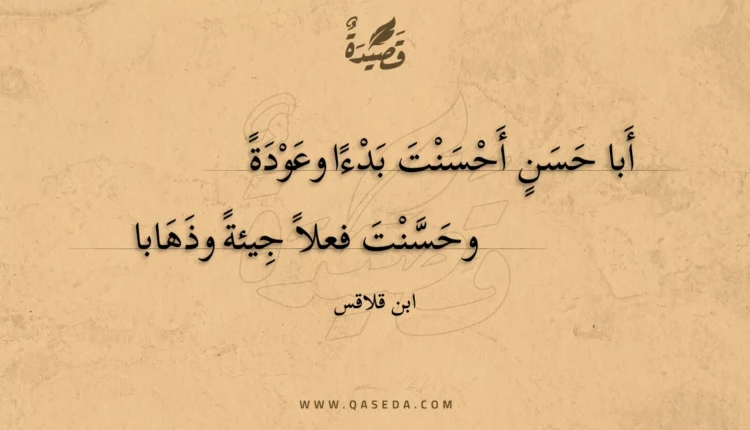 قَصِيدَةٌ
أَبا حَسَنٍ أَحْسَنْتَ بَدْءًا وعَوْدَةً
وحَسَّنْتَ فعلاً جِيئةً وذَهَابا
ابن قلاقس
WWW.QASEDA.COM